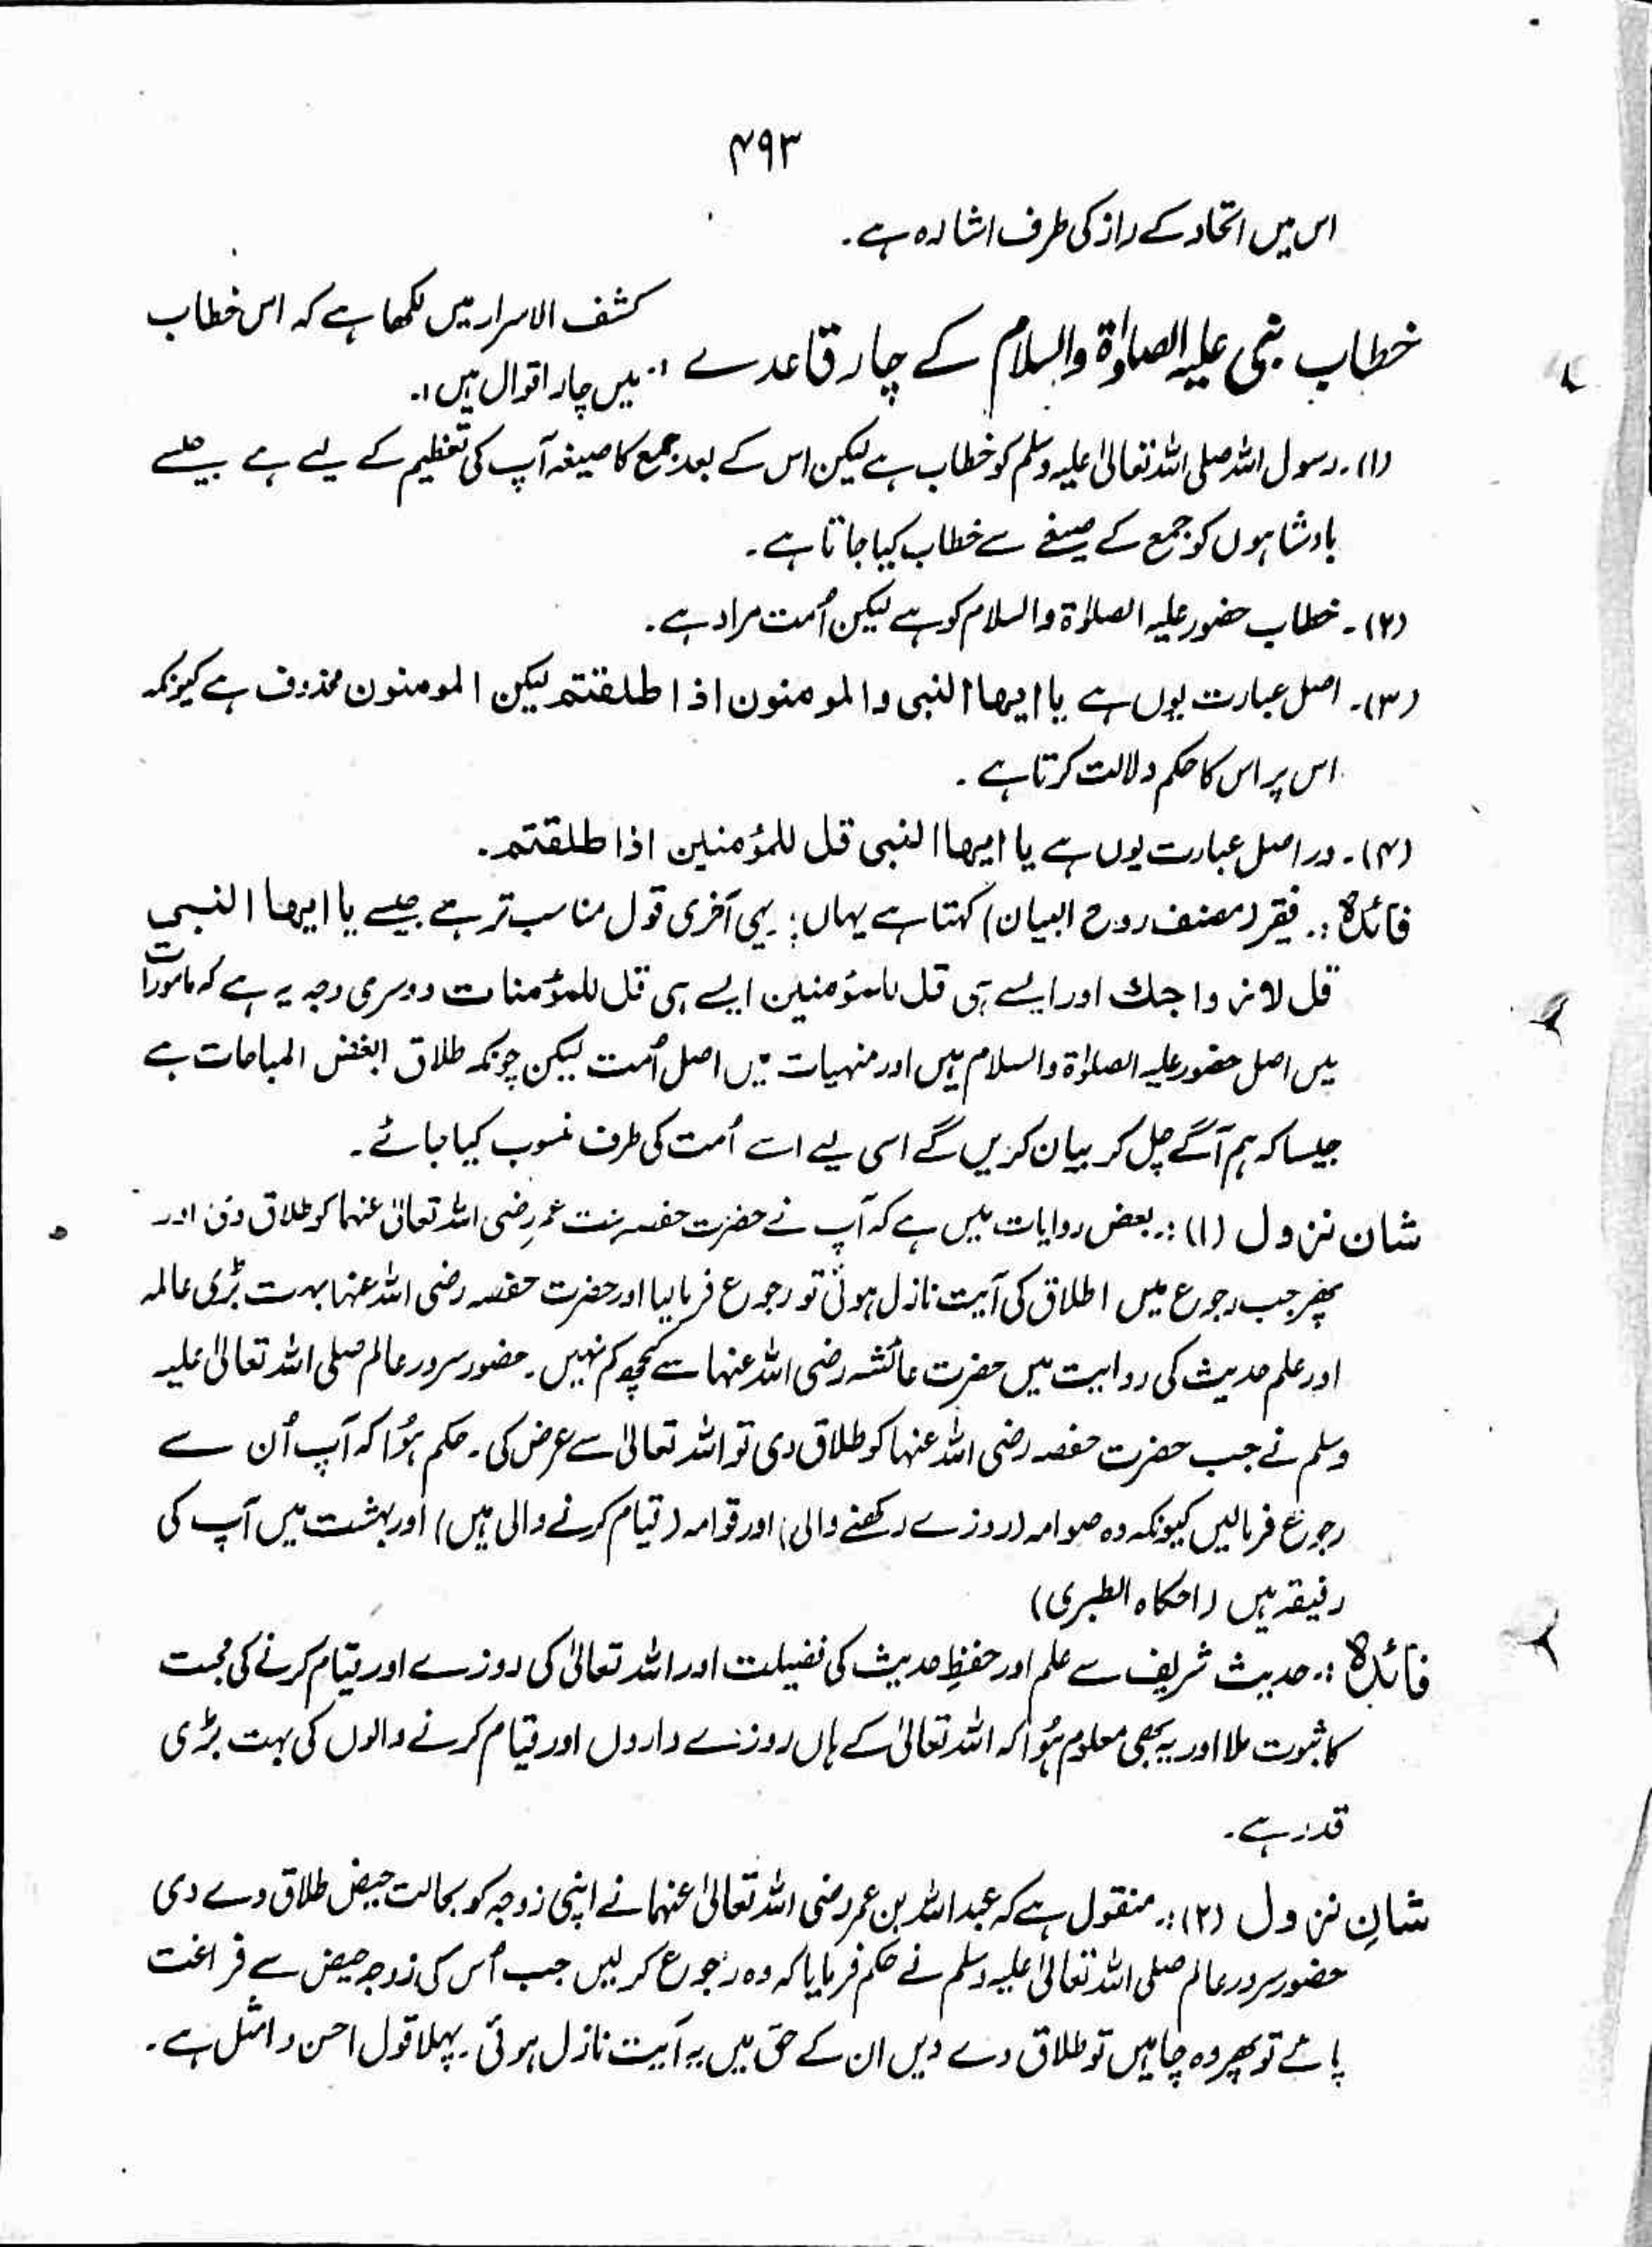 ۴۹۳
اس میں اتحاد کے راز کی طرف اشارہ ہے۔
خطاب نبی علیہ الصلوٰۃ والسلام کے چار قاعدے :۔ کشف الاسرار میں لکھا ہے کہ اس خطاب
میں چار اقوال ہیں :۔
(۱)۔ رسول اللہ صلی اللہ تعالیٰ علیہ وسلم کو خطاب ہے لیکن اس کے بعد جمع کا صیغہ آپ کی تعظیم کے لیے ہے جیسے
بادشاہوں کو جمع کے صیغے سے خطاب کیا جاتا ہے۔
(۲)۔ خطاب حضور علیہ الصلوٰۃ والسلام کو ہے لیکن اُمت مراد ہے۔
(۳)۔ اصل عبارت یوں ہے یا ایھا النبی والمومنون اذا طلقتم لیکن المومنون محذوف ہے کیونکہ
اس پر اس کا حکم دلالت کرتا ہے۔
(۴)۔ دراصل عبارت یوں ہے یا ایھا النبی قل للمؤمنین اذا طلقتم۔
فائدہ :۔ فقیر (مصنف روح البیان) کہتا ہے یہاں: یہی آخری قول مناسب تر ہے جیسے یا ایھا النبی
قل لازواجك اور ایسے ہی قل للمؤمنین ایسے ہی قل للمؤمنات دوسری وجہ یہ ہے کہ مامورات
میں اصل حضور علیہ الصلوٰۃ والسلام ہیں اور منہیات میں اصل اُمت لیکن چونکہ طلاق ابغض المباحات ہے
جیسا کہ ہم آگے چل کر بیان کریں گے اسی لیے اسے اُمت کی طرف منسوب کیا جائے۔
شان نزول (۱) :۔ بعض روایات میں ہے کہ آپ نے حضرت حفصہ بنت عمر رضی اللہ تعالیٰ عنہما کو طلاق دی اور
پھر جب رجوع میں اطلاق کی آیت نازل ہوئی تو رجوع فرمالیا اور حضرت حفصہ رضی اللہ عنہا بہت بڑی عالمہ
اور علم حدیث کی روایت میں حضرت عائشہ رضی اللہ عنہا سے کچھ کم نہیں۔ حضور سرور عالم صلی اللہ تعالیٰ علیہ
وسلم نے جب حضرت حفصہ رضی اللہ عنہا کو طلاق دی تو اللہ تعالیٰ سے عرض کی۔ حکم ہُوا کہ آپ اُن سے
رجوع فرمالیں کیونکہ وہ صوامہ (روزے رکھنے والی) اور قوامہ (قیام کرنے والی ہیں) اور بہشت میں آپ کی
رفیقہ ہیں (احکاہ الطبری)
فائدہ :۔ حدیث شریف سے علم اور حفظِ حدیث کی فضیلت اور اللہ تعالیٰ کی روزے اور قیام کرنے کی محبت
کا ثبوت ملا اور یہ بھی معلوم ہُوا کہ اللہ تعالیٰ کے ہاں روزے داروں اور قیام کرنے والوں کی بہت بڑی
قدر ہے۔
شانِ نزول (۲) :۔ منقول ہے کہ عبداللہ بن عمر رضی اللہ تعالیٰ عنہما نے اپنی زوجہ کو بحالت حیض طلاق دے دی
حضور سرور عالم صلی اللہ تعالیٰ علیہ وسلم نے حکم فرمایا کہ وہ رجوع کر لیں جب اُس کی زوجہ حیض سے فراغت
پائے تو پھر وہ چاہیں تو طلاق دے دیں ان کے حق میں یہ آیت نازل ہوئی۔ پہلا قول احسن و امثل ہے۔